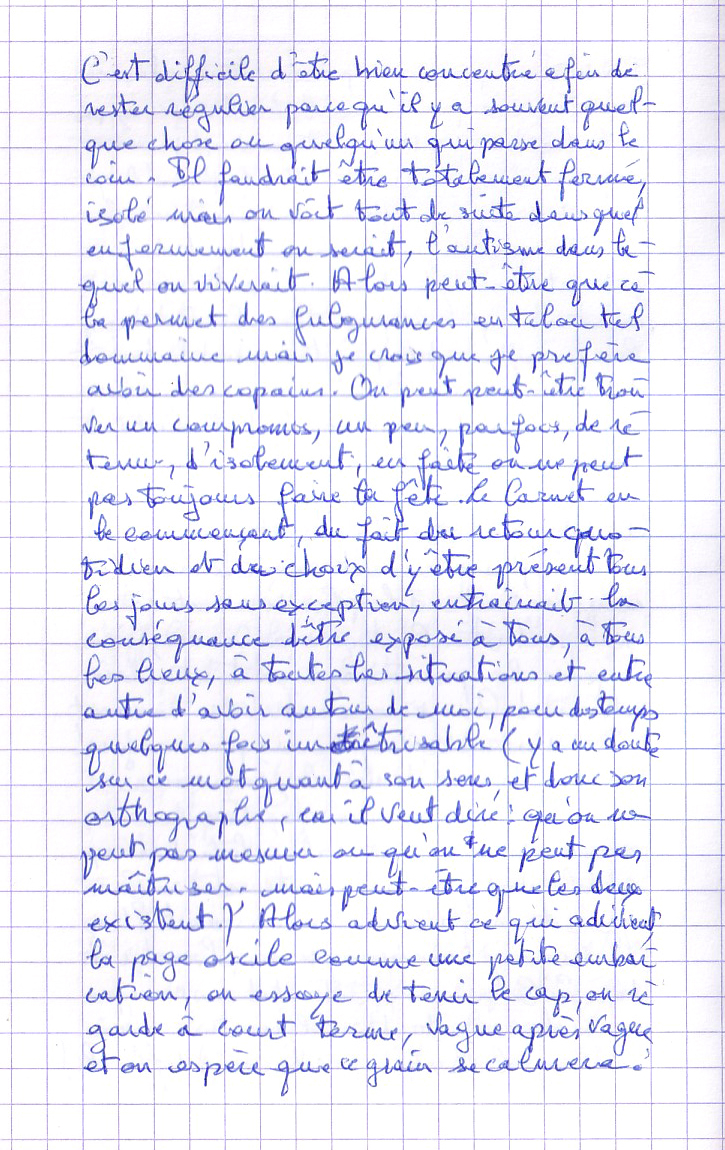 C'est difficile d'être bien concentré afin de
rester régulier parce qu'il y a souvent quel-
que chose ou quelqu'un qui passe dans le
coin. Il faudrait être totalement fermé,
isolé mais on voit tout de suite dans quel
enfermement on serait, l'autisme dans le-
quel on viverait. Alors peut-être que ce-
la permet des fulgurances en tel ou tel
dommaine mais je crois que je préfère
avoir des copains. On peut peut-être trou
ver un compromis, un peu, parfois, de re
tenue, d'isolement, en faite on ne peut
pas toujours faire la fête. Le Carnet en
le commençant, du fait du retour quo-
tidien et du choix d'y être présent tous
les jours sans exception, entrainait la
conséquance d'être exposé à tous, à tous
les lieux, à toutes les situations et entre
autre d'avoir autour de moi, peu du temps
quelques fois im trisable (y a un doute
sur ce mot quant à son sens, et donc son
orthographe, car il veut dire : qu'on ne
peut pas mesurer ou qu'on ne peut pas
maîtriser. mais peut-être que les deux
existent.) Alors advient ce qui advient,
la page oscile comme une petite embar
cation, on essaye de tenir le cap, on re
garde à court terme, vague après vague
et on espère que ce grain se calmera.